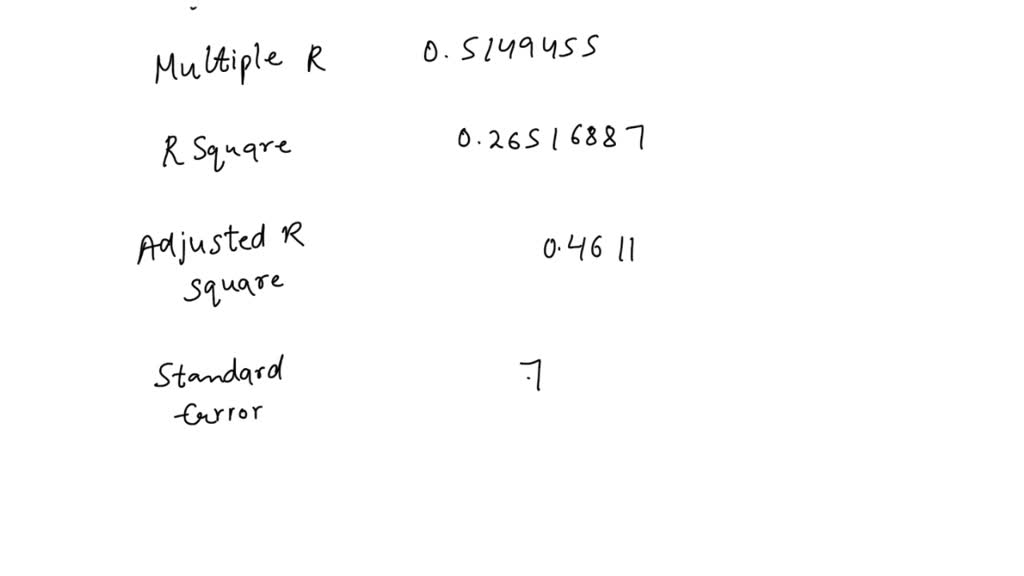 Multiple R 0.5149455
R Square 0.26516887
Adjusted R 0.4611
square
Standard 7
Error